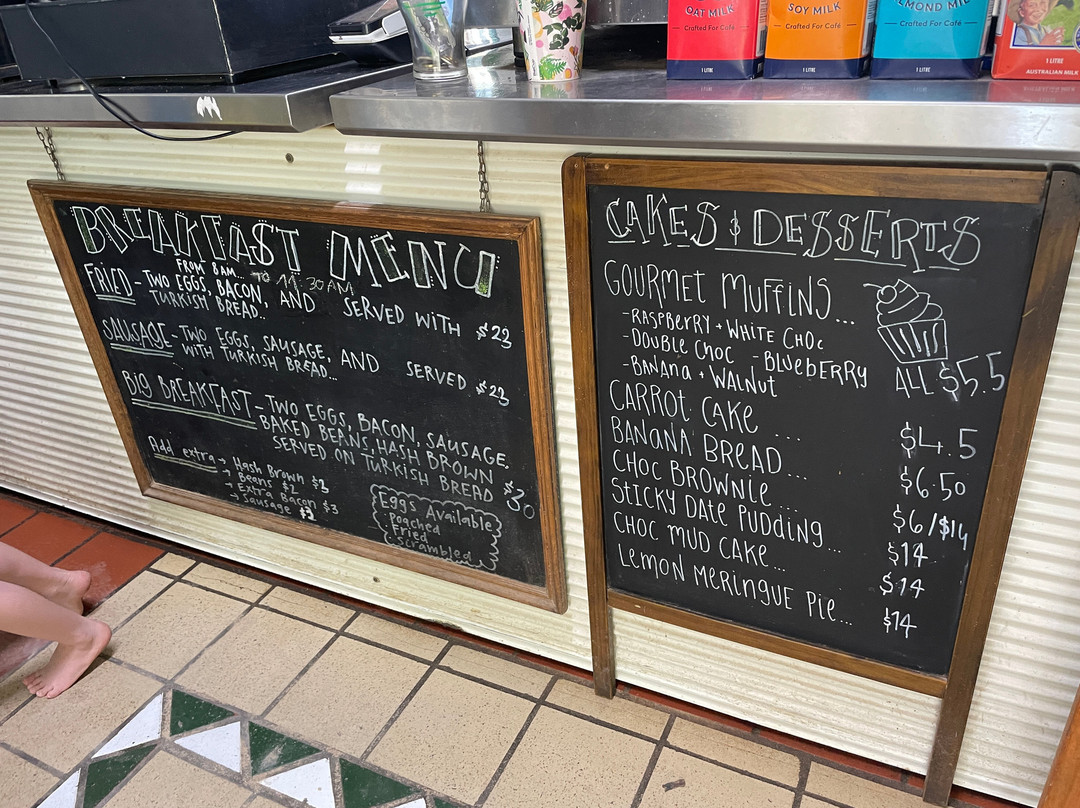 OAT MILK
Crafted For Café
1 LITRE
SOY MILK
Crafted For Café
1 LITRE
ALMOND MILK
Crafted For Café
1 LITRE
1 LITRE
AUSTRALIAN MILK
BREAKFAST MENU
FROM 8AM TO 11.30AM
FRIED - TWO EGGS, BACON, AND SERVED WITH
TURKISH BREAD.. $23
SAUSAGE - TWO EGGS, SAUSAGE, AND SERVED
WITH TURKISH BREAD... $23
BIG BREAKFAST - TWO EGGS, BACON, SAUSAGE,
BAKED BEANS, HASH BROWN
SERVED ON TURKISH BREAD $30
Add extra → Hash Brown $3
→ Beans
→ Extra Bacon $3
→ Sausage
Eggs Available
. Poached
. Fried
. Scrambled
CAKES & DESSERTS
GOURMET MUFFINS...
- RASPBERRY + WHITE CHOC
- DOUBLE CHOC - BLUEBERRY
- BANANA + WALNUT ALL $5.5
CARROT CAKE .... $4.5
BANANA BREAD... $6.50
CHOC BROWNIE... $6/$14
STICKY DATE PUDDING... $14
CHOC MUD CAKE... $14
LEMON MERINGUE PIE... $14